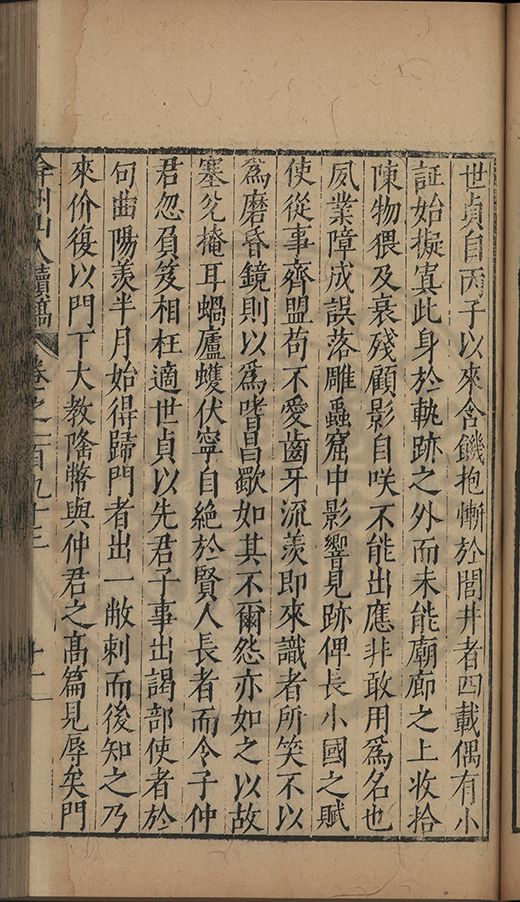 世貞自丙子以來含饑抱慚於閭井者四載偶有小
証始擬寘此身於軌跡之外而未能廟廊之上收拾
陳物猥及衰殘顧影自咲不能出應非敢用爲名也
夙業障成誤落雕蟲窟中影響見跡俾長小國之賦
使從事齊盟苟不愛齒牙流羨即來識者所笑不以
爲磨昏鏡則以爲嗜昌歜如其不爾怨亦如之以故
塞兊掩耳蝸廬蠖伏寧自絕於賢人長者而令子仲
君忽負笈相枉適世貞以先君子事出謁部使者於
句曲陽羨半月始得歸門者出一敝刺而後知之乃
來价復以門下大教隆幣與仲君之髙篇見辱矣門
弇州山人續稿 卷之一百九十三 十二